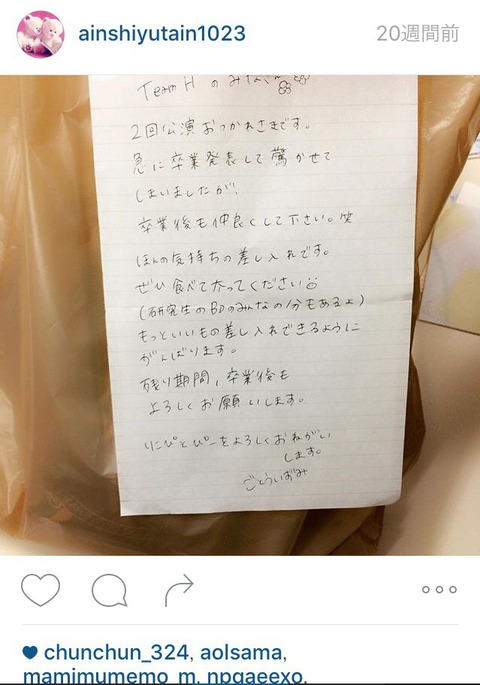 ainshiyutain1023
20週間前
Team H のみなさん
2回公演おつかれさまです。
急に卒業発表して驚かせて
しまいましたが、
卒業後も仲良くして下さい。笑
ほんの気持ちの差し入れです。
ぜひ食べて太ってください
(研究生のBDのみんなの分もあるよ)
もっといいもの差し入れできるように
がんばります。
残り期間、卒業後も
よろしくお願いします。
りこぴとぴーをよろしくおねがい
します。
ごとういずみ
chunchun_324, aolsama,
mamimumemo_m, npgaeexo,